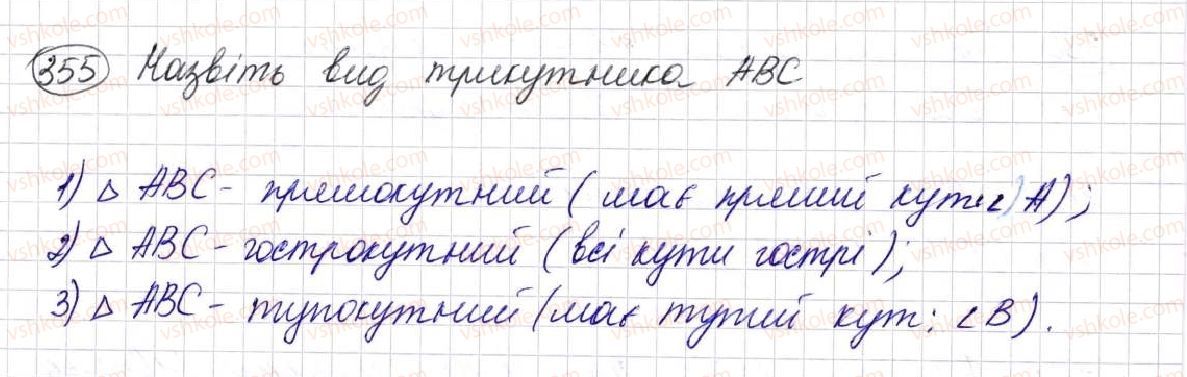 355 Назвіть вид трикутника ABC
1) △ ABC - прямокутний (має прямий кут: ∠A);
2) △ ABC - гострокутний (всі кути гострі);
3) △ ABC - тупокутний (має тупий кут: ∠B).
vshkole.com